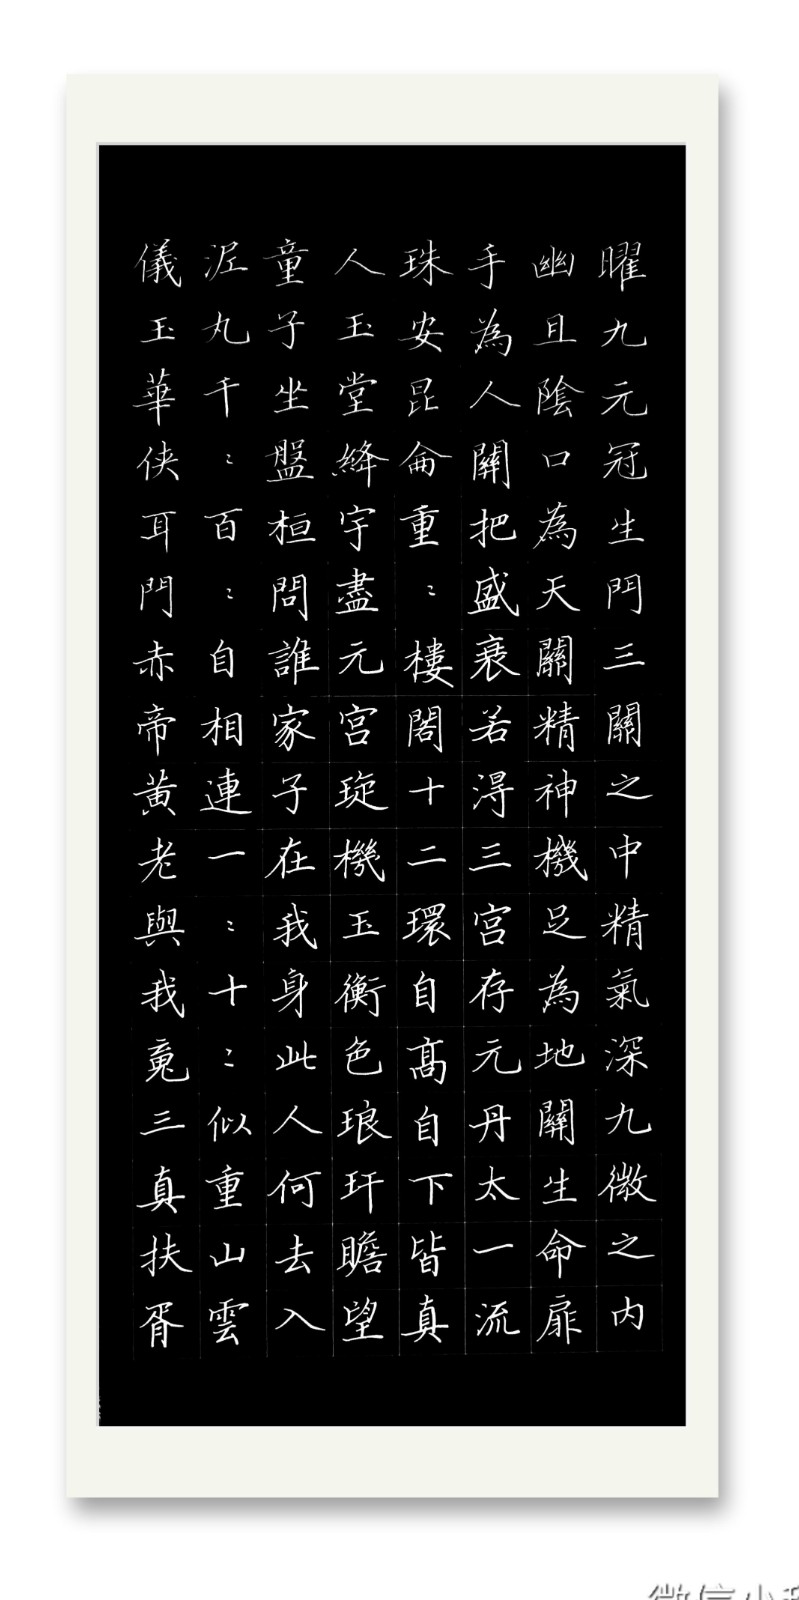 曜九元冠生門三關之中精氣深九微之内
幽且陰口為天關精神機足為地關生命扉
手為人關把盛衰若淂三宫存元丹太一流
珠安昆侖重〻樓閣十二環自髙自下皆真
人玉堂絳宇盡元宫琁機玉衡色琅玕瞻望
童子坐盤桓問誰家子在我身此人何去入
泥丸千〻百〻自相連一〻十〻似重山雲
儀玉華侠耳門赤帝黄老與我䰟三真扶胥
微信小